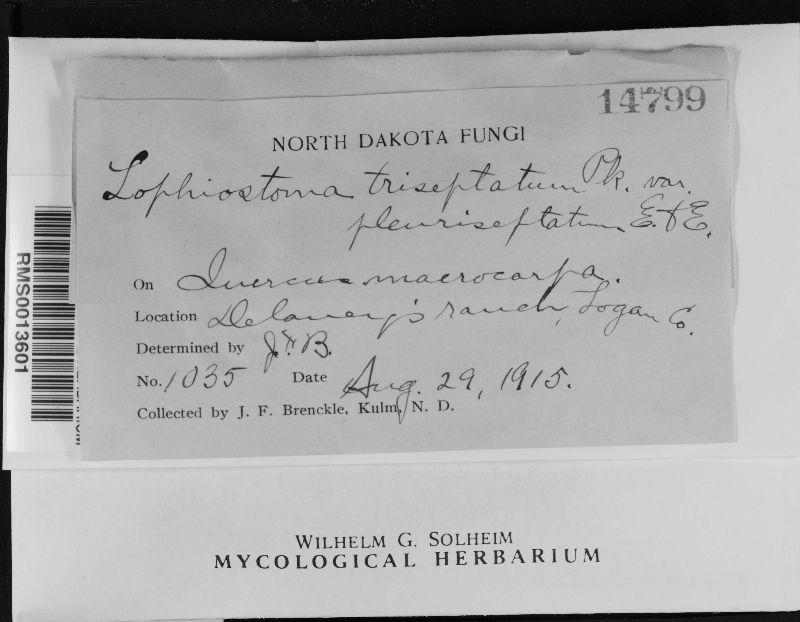 14799
NORTH DAKOTA FUNGI
Lophiostoma triseptatum Pk. var.
pleuriseptatum E. & E.
On Quercus macrocarpa.
Location Delaney's ranch, Logan Co.
Determined by J. F. B.
No. 1035 Date Aug. 29, 1915.
Collected by J. F. Brenckle, Kulm, N. D.
RMS0013601
WILHELM G. SOLHEIM
MYCOLOGICAL HERBARIUM